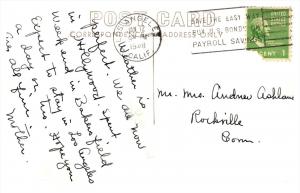 POST CARD
CORRESPONDENCE
ADDRESS ONLY
LOS ANGELES
1940
CALIF
SAVE THE EASY WAY
BUY BONDS
PAYROLL SAVINGS
1 CENT 1
Weather is
perfect. We are now
in Hollywood, spent
week end in Bakersfield
Expect to stay in Los Angeles
a day or two. Hope you
are all fine
Mother.
Mr. Mrs. Andrew Ashland
Rockville
Conn.